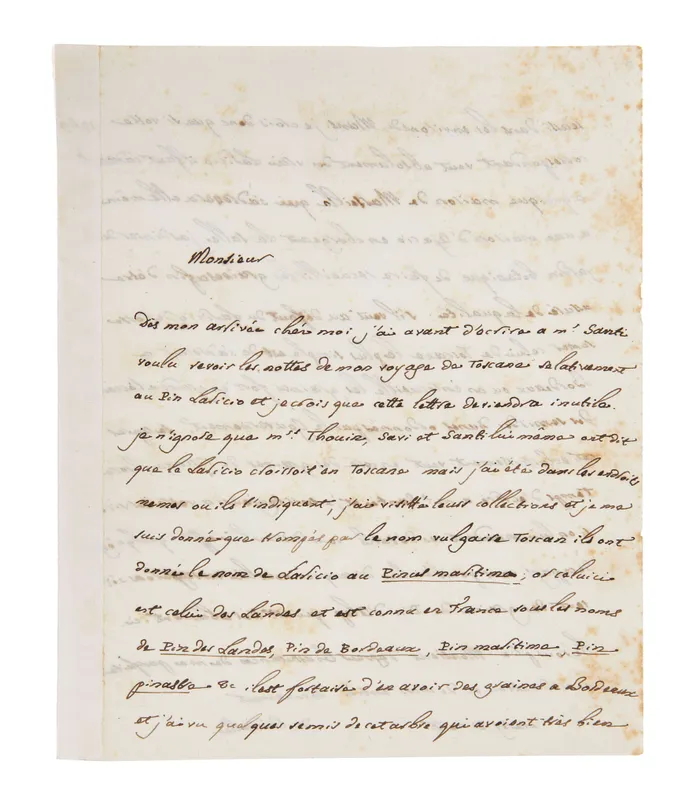 Monsieur
Dès mon arrivée chéz moi j'ai avant d'ecrire a mr Santi
voulu revoir les nottes de mon voyage de Toscane relativement
au Pin Laricio et je crois que cette lettre deviendra inutile.
je n'ignore que mrs Thouin, Savi et Santi lui même ont dit
que le Laricio croissoit en Toscane mais j'ai été dans les endroits
memes ou ils l'indiquent, j'ai visitté leurs collections et je me
suis donné que trompés par le nom vulgaire Toscan ils ont
donné le nom de Laricio au Pinus maritima; or celui ci
est celui des Landes et est connu en France sous les noms
de Pin des Landes, Pin de Bordeaux, Pin maritime, Pin
pinastre &c il est d'en avoir des graines a Bordeaux
et j'ai vu quelques semis de cet arbre qui avoient très bien